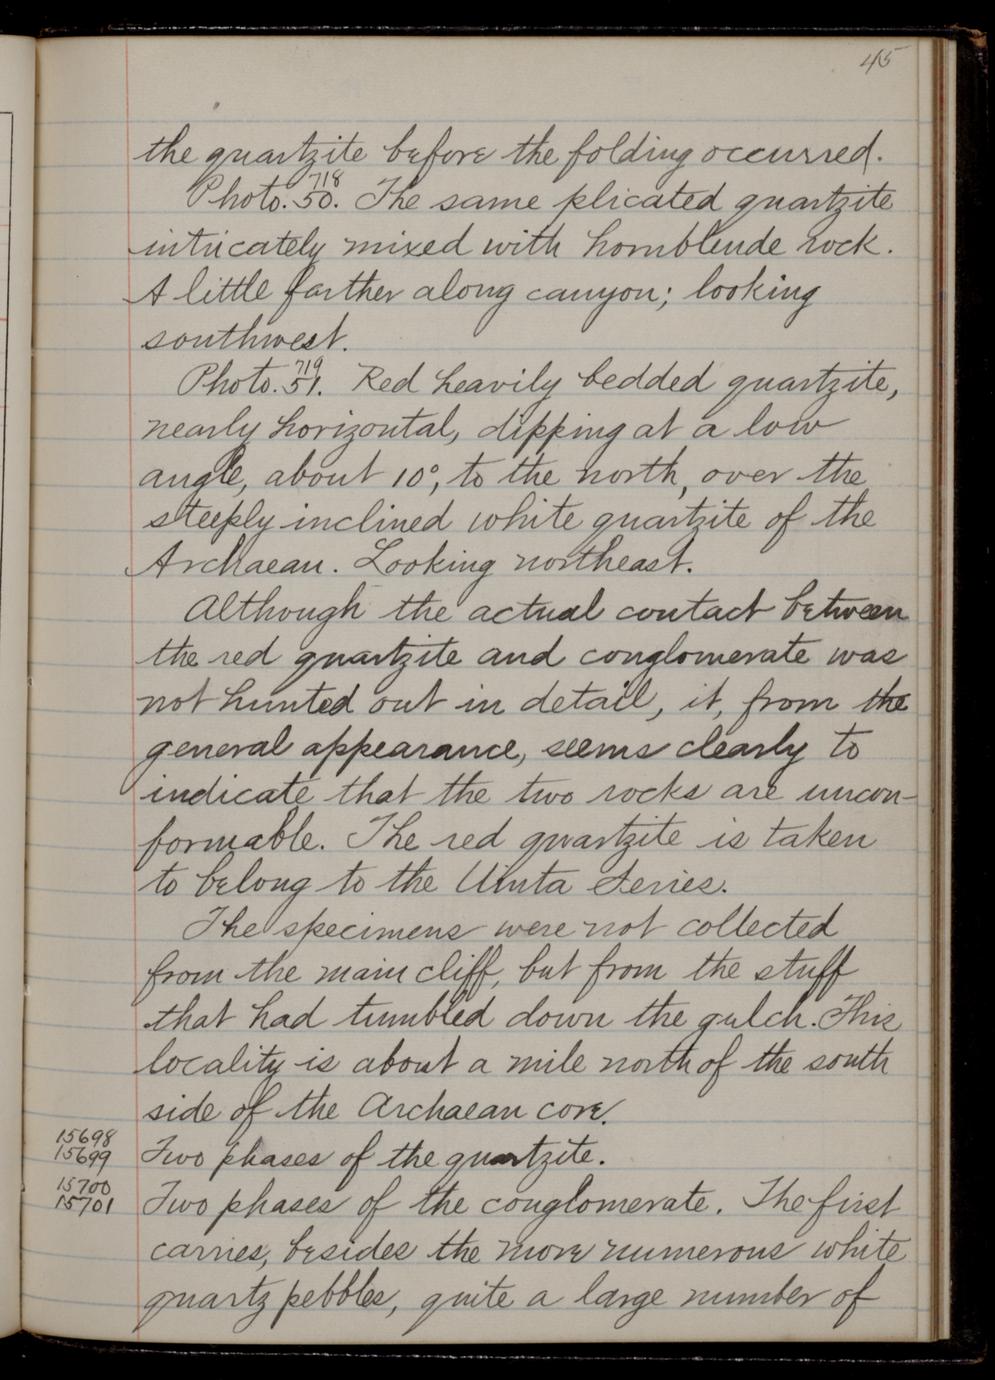 45
the quartzite before the folding occurred.
718
Photo. 50. The same plicated quartzite
intricately mixed with hornblende rock.
A little farther along canyon; looking
southwest.
719
Photo. 51. Red heavily bedded quartzite,
nearly horizontal, dipping at a low
angle, about 10°, to the north, over the
steeply inclined white quartzite of the
Archaean. Looking northeast.
Although the actual contact between
the red quartzite and conglomerate was
not hunted out in detail, it, from the
general appearance, seems clearly to
indicate that the two rocks are uncon-
formable. The red quartzite is taken
to belong to the Uinta Series.
The specimens were not collected
from the main cliff, but from the stuff
that had tumbled down the gulch. This
locality is about a mile north of the south
side of the Archaean core.
15698
15699 Two phases of the quartzite.
15700
15701 Two phases of the conglomerate. The first
carries, besides the more numerous white
quartz pebbles, quite a large number of